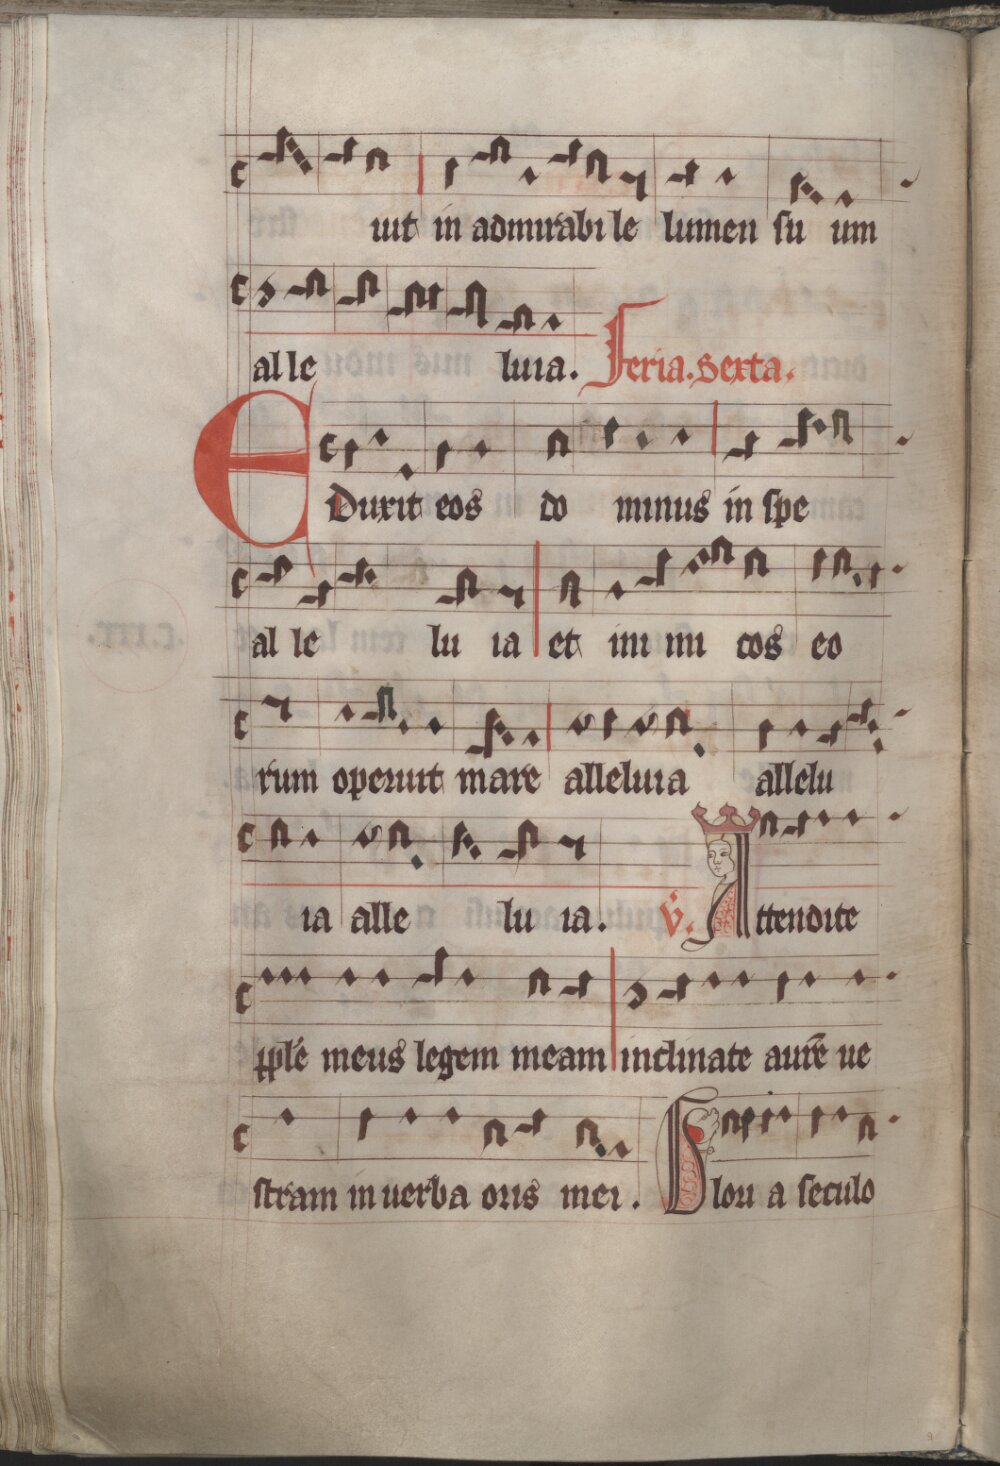 uit in admirabi le lumen su um
al le luia. Feria. sexta.
EDuxit eos do minus in spe
al le lu ia et ini mi cos eo
rum operuit mare alleluia allelu
ia alle lu ia. V. Attendite
meus legem meam inclinate aurē ue
stram in uerba oris mei. a seculo